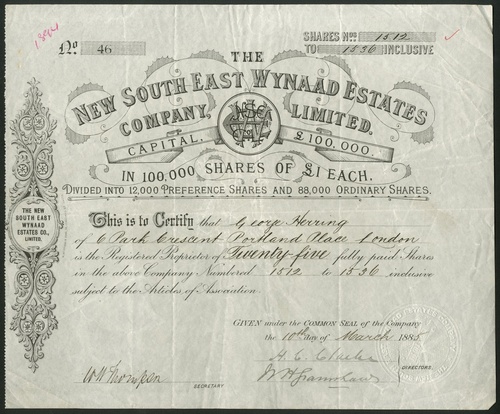 No. 46
SHARES Nos. 1512
TO 1536 INCLUSIVE
THE
NEW SOUTH EAST WYNAAD ESTATES
COMPANY, LIMITED.
CAPITAL. £100,000.
IN 100,000 SHARES OF £1 EACH.
DIVIDED INTO 12,000 PREFERENCE SHARES AND 88,000 ORDINARY SHARES.
THE NEW
SOUTH EAST
WYNAAD
ESTATES CO.,
LIMITED.
This is to Certify that George Herring
of 6 Park Crescent Portland Place London
is the Registered Proprietor of Twenty-five fully paid Shares
in the above Company Numbered 1512 to 1536 inclusive
subject to the Articles of Association.
GIVEN under the COMMON SEAL of the Company
the 10th day of March 1885
DIRECTORS.
W W Thompson
SECRETARY